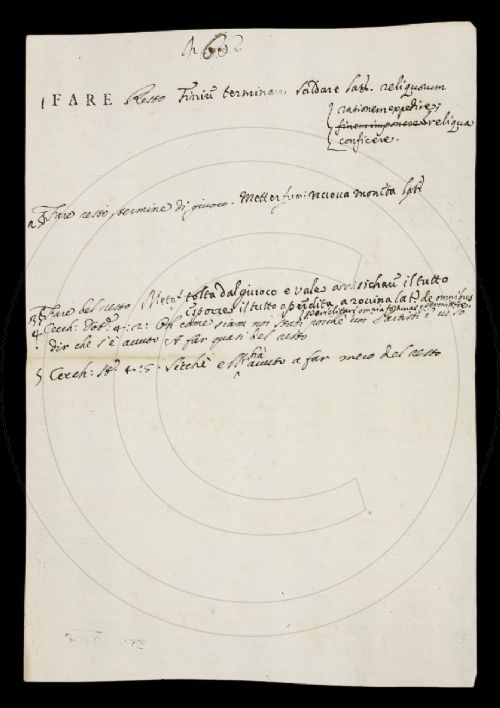 60
1 FARE Resto Finire terminare, Saldare latt. reliquorum
rationem expedire,
finem imponere reliqua
conficere.
2 § Fare resto, termine di giuoco. Metter su nuova moneta latt
3 § Fare del resto Meta. tolta dal giuoco e vale arrisichare il tutto
esporre il tutto a perdita, a rovina lat. de omnibus
periclitari omnia fortunae permittere
4 Cecch: Dot. 4: 2: Oh come siam noi stati perchè
dir che s'è avuto A far quasi del resto
5 Cecch: 4: 5. Sicchè e s'ha avuto a far meco del resto